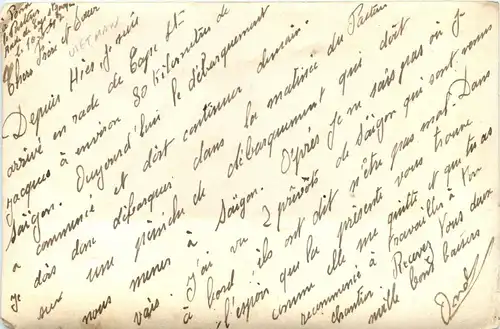 Chers Frère et Sœur
VIETNAM
Depuis Hier, je suis
arrivé en rade de Cape St
Jacques à environ 80 kilomètres de
Saïgon. Aujourd'hui le débarquement
a commencé et doit continuer demain.
Je dois donc débarquer dans la matinée du Pasteur
sur une péniche de débarquement qui doit
nous mener à Saïgon. D'après je ne sais pas où je
vais. J'ai vu 2 prévôts de Saïgon qui sont venus
à bord, ils ont dit n'être pas mal. Dans
l'espoir que la présente vous trouve
comme elle me quitte et que tu as
recommencé à travailler à
chantier Recevez Vous deux
mille bons baisers